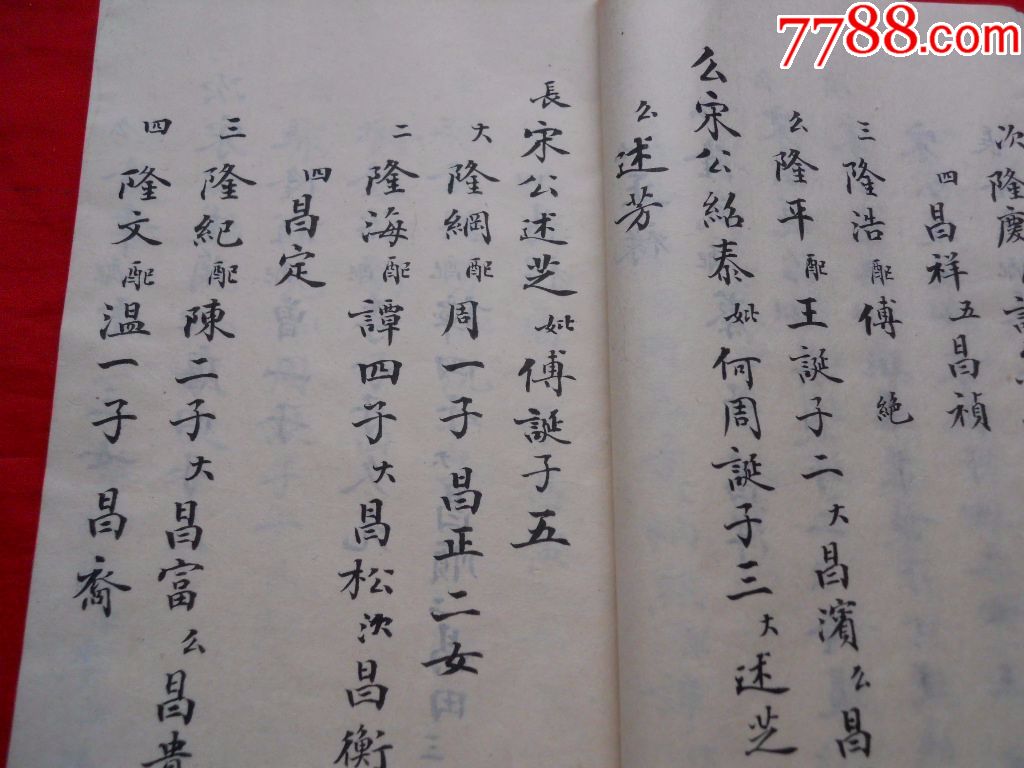 7788.com
次隆慶
四昌祥 五昌禎
三隆浩配傅 絶
么隆平配王誕子二 大昌濱 么昌
么宋公紹泰妣何周誕子三 大述芝
么述芳
長宋公述芝妣傅誕子五
大隆綱配周一子 昌正 二女
二隆海配譚四子 大昌松 次昌衡
四昌定
三隆紀配陳二子 大昌富 么昌貴
四隆文配溫一子 昌裔